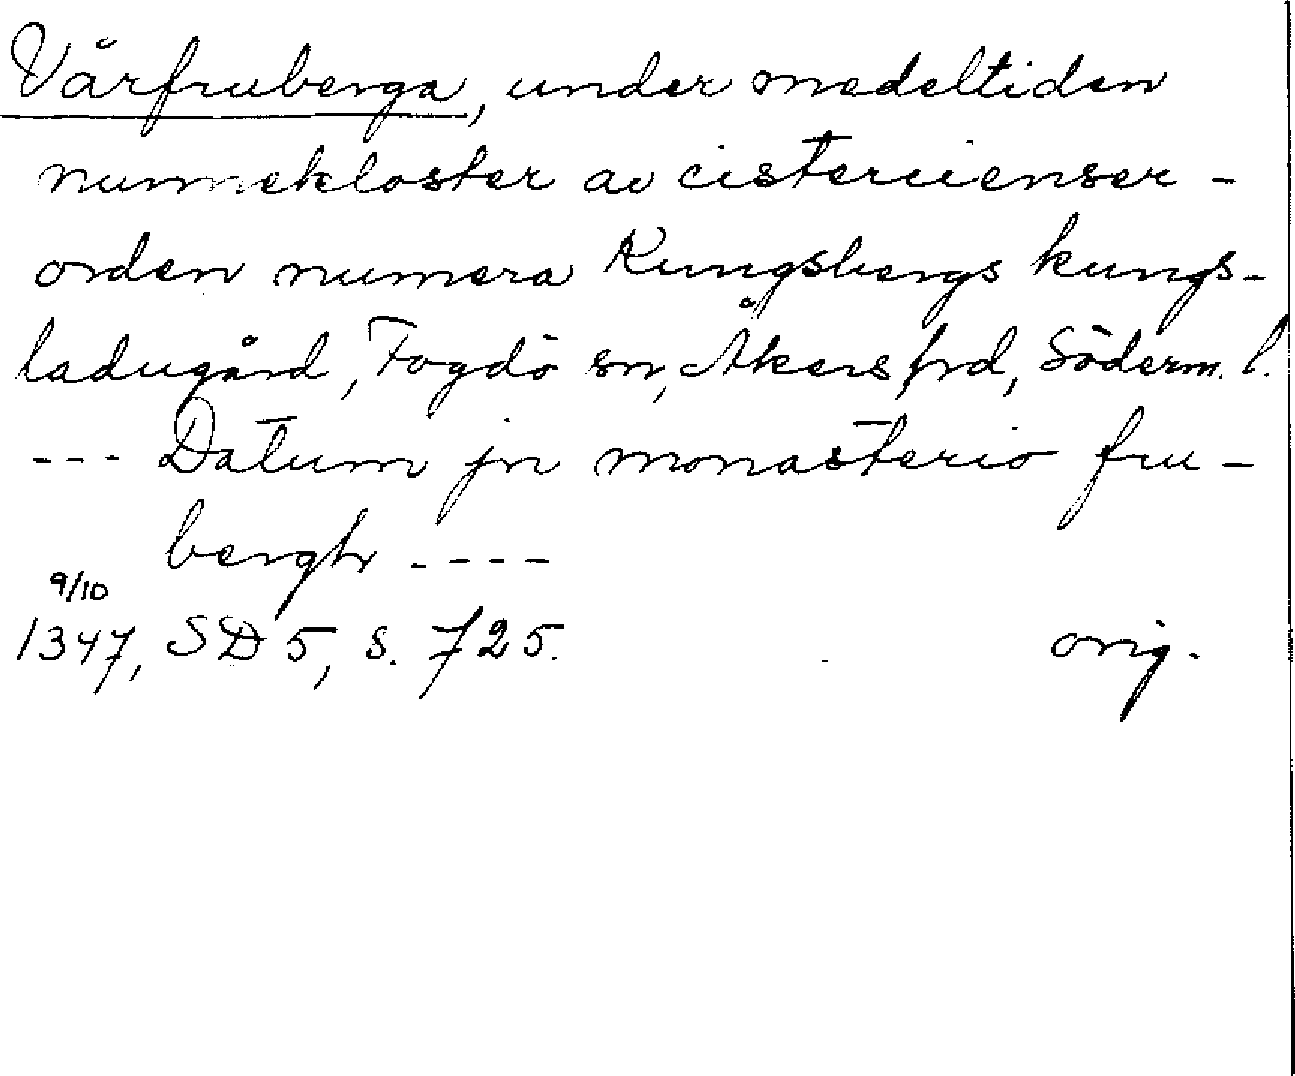 Vårfruberga, under medeltiden
nunnekloster av cistercienser-
orden numera Kungsbergs kungs-
ladugård, Fogdö sn, Åkers hrd, Söderm. l.
--- Datum jn monasterio fru-
berghr ----
9/10
1347, SD 5, s. 725. orig.